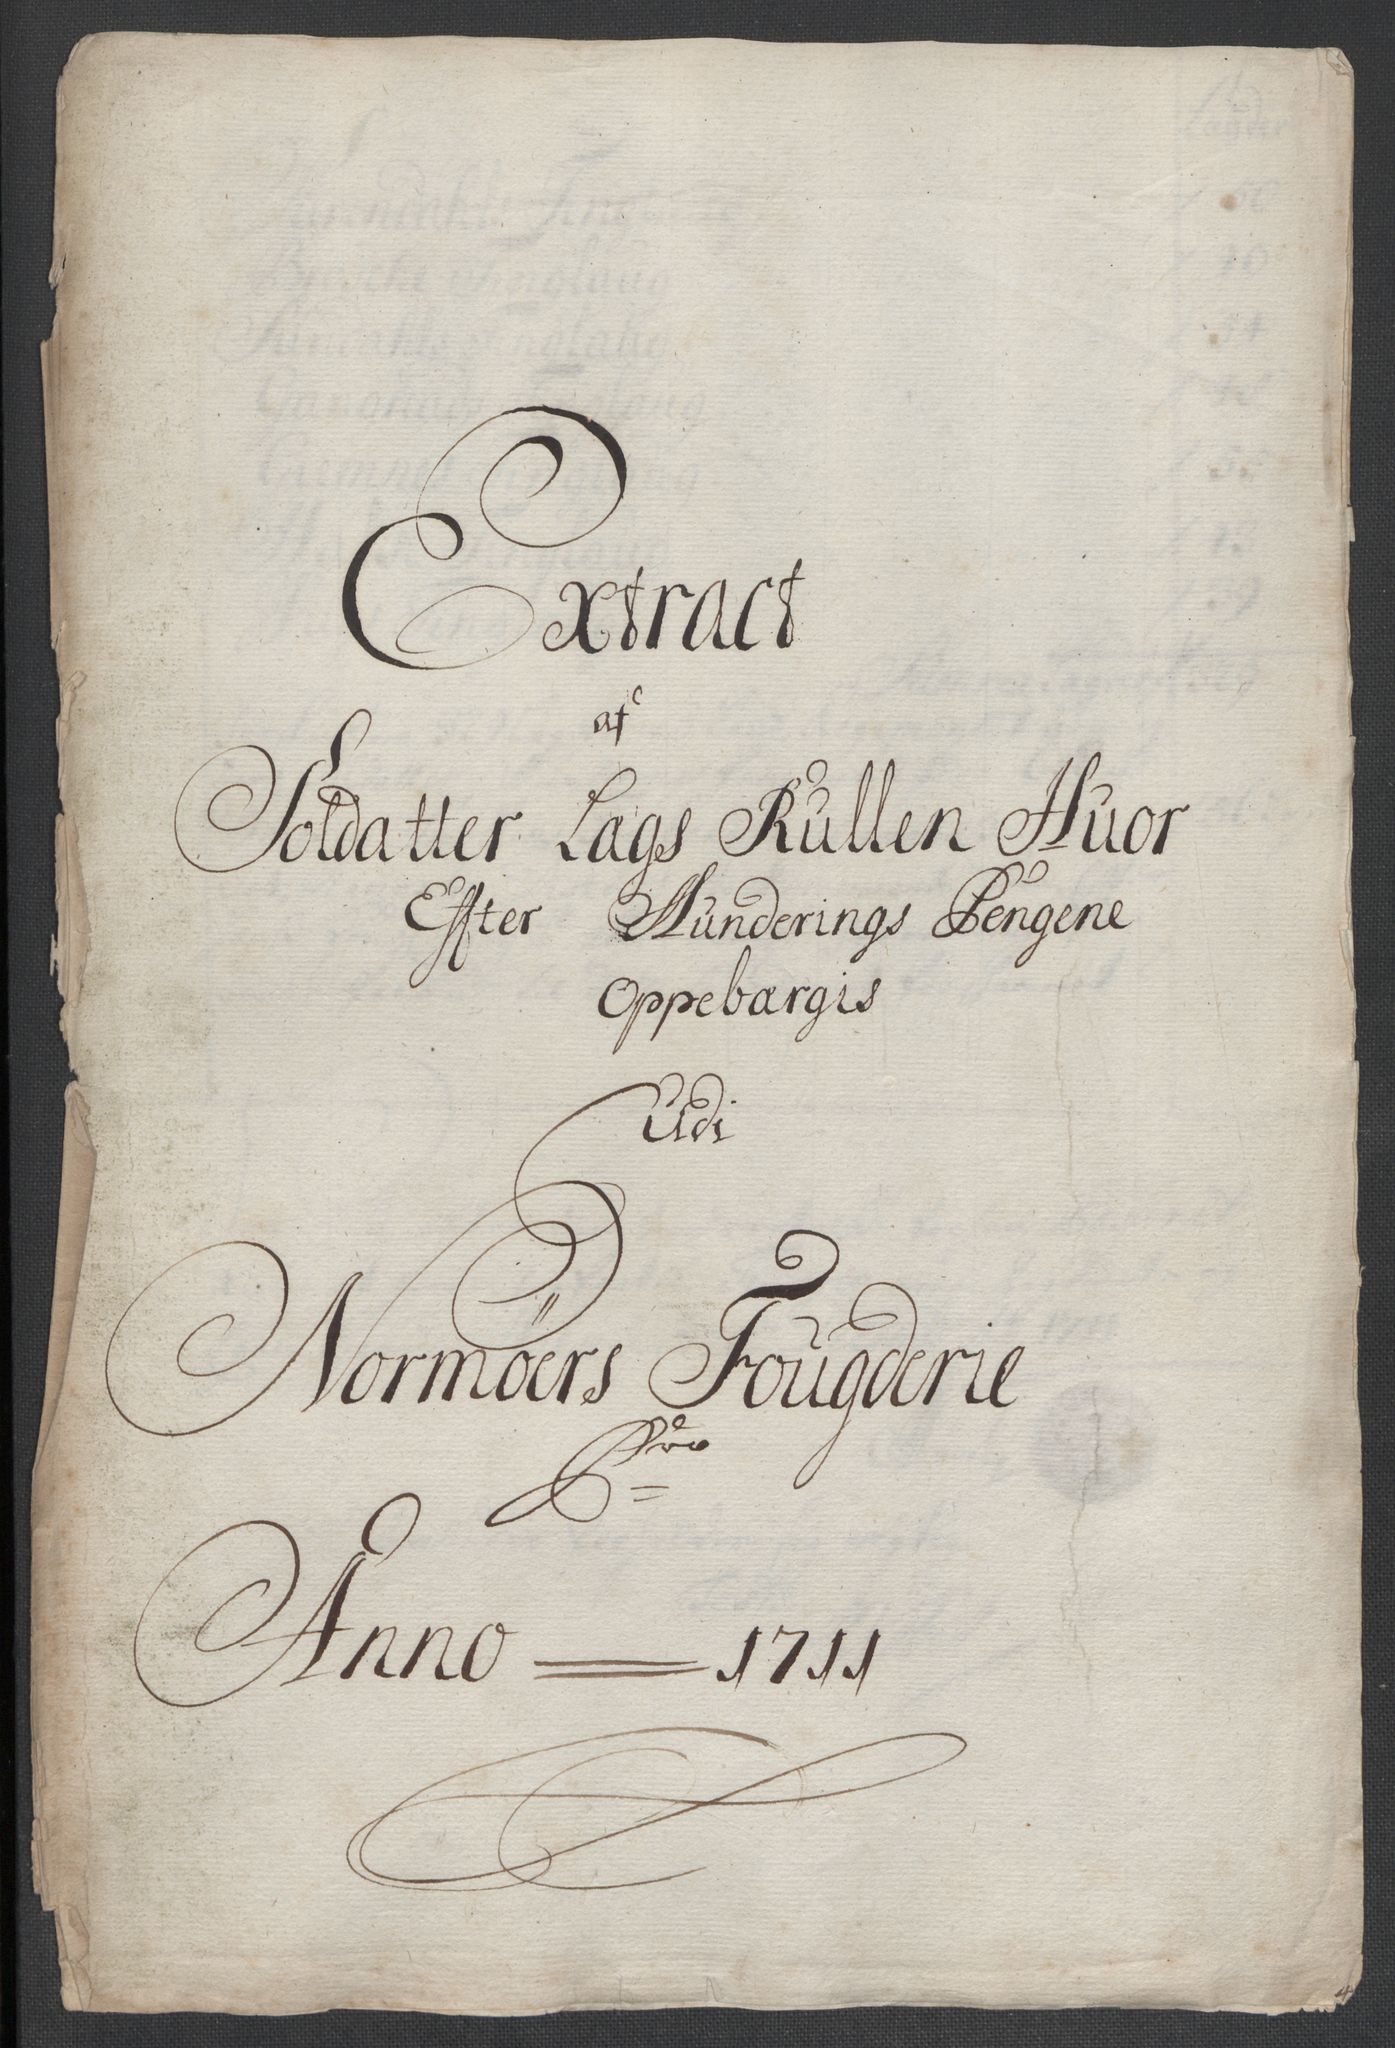 Extract
af
Soldatter Lags Rullen Huor
Efter Munderings Pengene
oppebærgis
Udi
Normöers Fougderie
Pro
Anno 1711